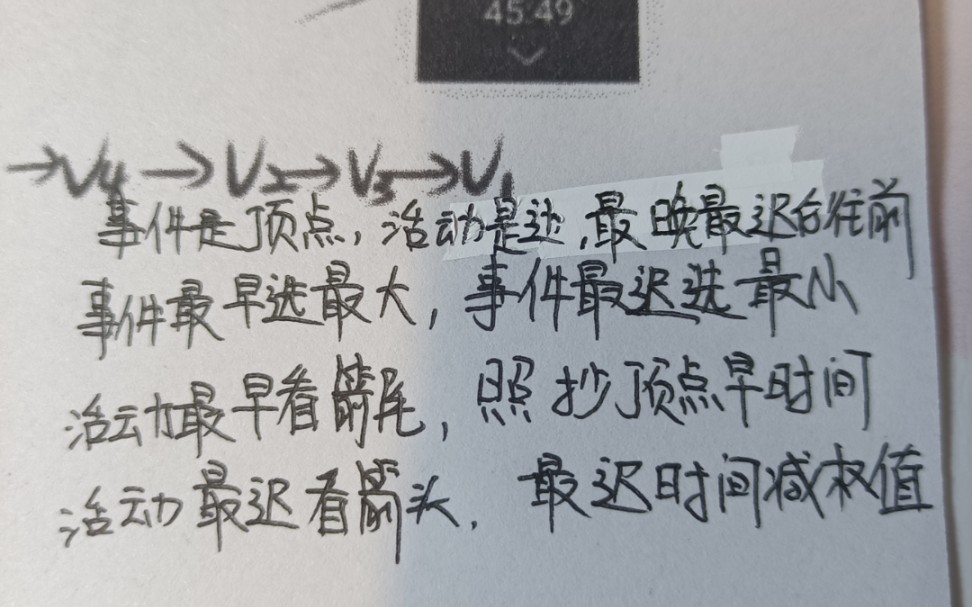 45:49
→V4→V2→V3→V1
事件是顶点，活动是边，最晚最迟后往前
事件最早选最大，事件最迟选最小
活动最早看箭尾，照抄顶点早时间
活动最迟看箭头，最迟时间减权值